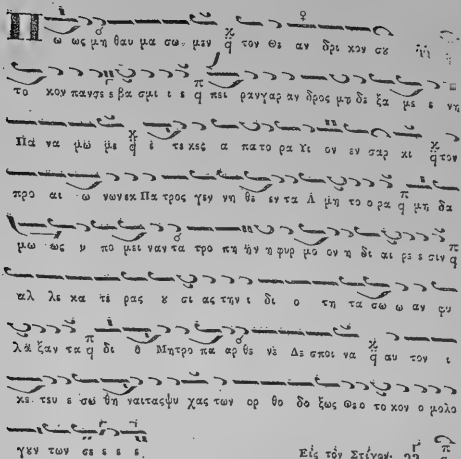 Π ω ως μη θαυ μα σω μεν q τον Θε αν δρι κον σου
το κον πανσε ε βα σμι ι ε q πει ραν γαρ αν δρος μη δε ξα με ε νη
Πα να μω με q ε τε κες α πα το ρα Υι ον εν σαρ κι q τον
προ αι ω νων εκ Πα τρος γεν νη θε εν τα Α μη το ο ρα q μη δα
μω ως υ πο μει ναν τα τρο πη ην η φυρ μο ον η δι αι ρε ε σιν q
αλ λε κα τε ρας ου σι ας την ι δι ο τη τα σω ω αν φυ
λα ξαν τα q δι ο Μητρο πα αρ θε νε Δε σποι να q αυ τον ι
κε τευ ε σω θη ναι τας ψυ χας των ορ θο δο ξως Θε ο το κον ο μολο
γουν των σε ε ε ε. Εἰς τὸν Στίχον.